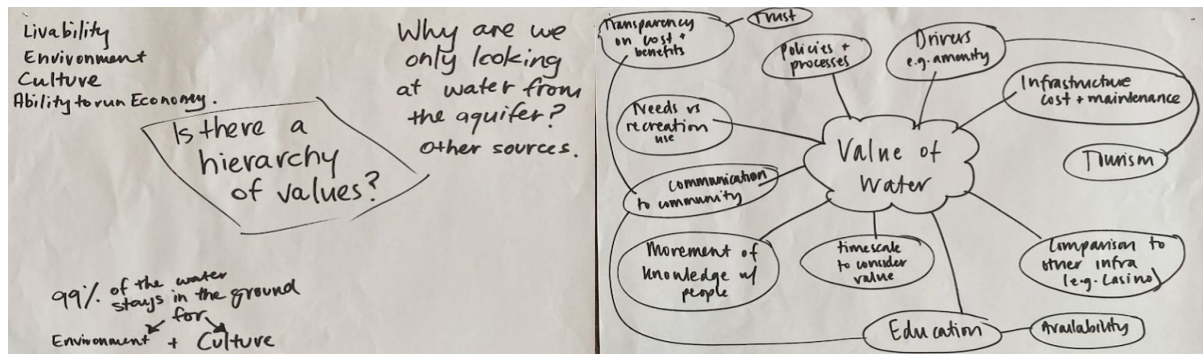 Livability
Environment
Culture
Ability to run Economy.
Is there a
hierarchy
of values?
Why are we
only looking
at water from
the aquifer?
other sources.
99% of the water
stays in the ground
for
Environment + Culture
Transparency
on cost +
benefits
Trust
Policies +
processes
Drivers
e.g. amenity
Infrastructure
cost + maintenance
Needs vs
recreation
use
Value of
Water
Tourism
Communication
to community
Movement of
knowledge w/
people
timescale
to consider
value
Comparison to
other infra
(e.g. Casino)
Education
Availability